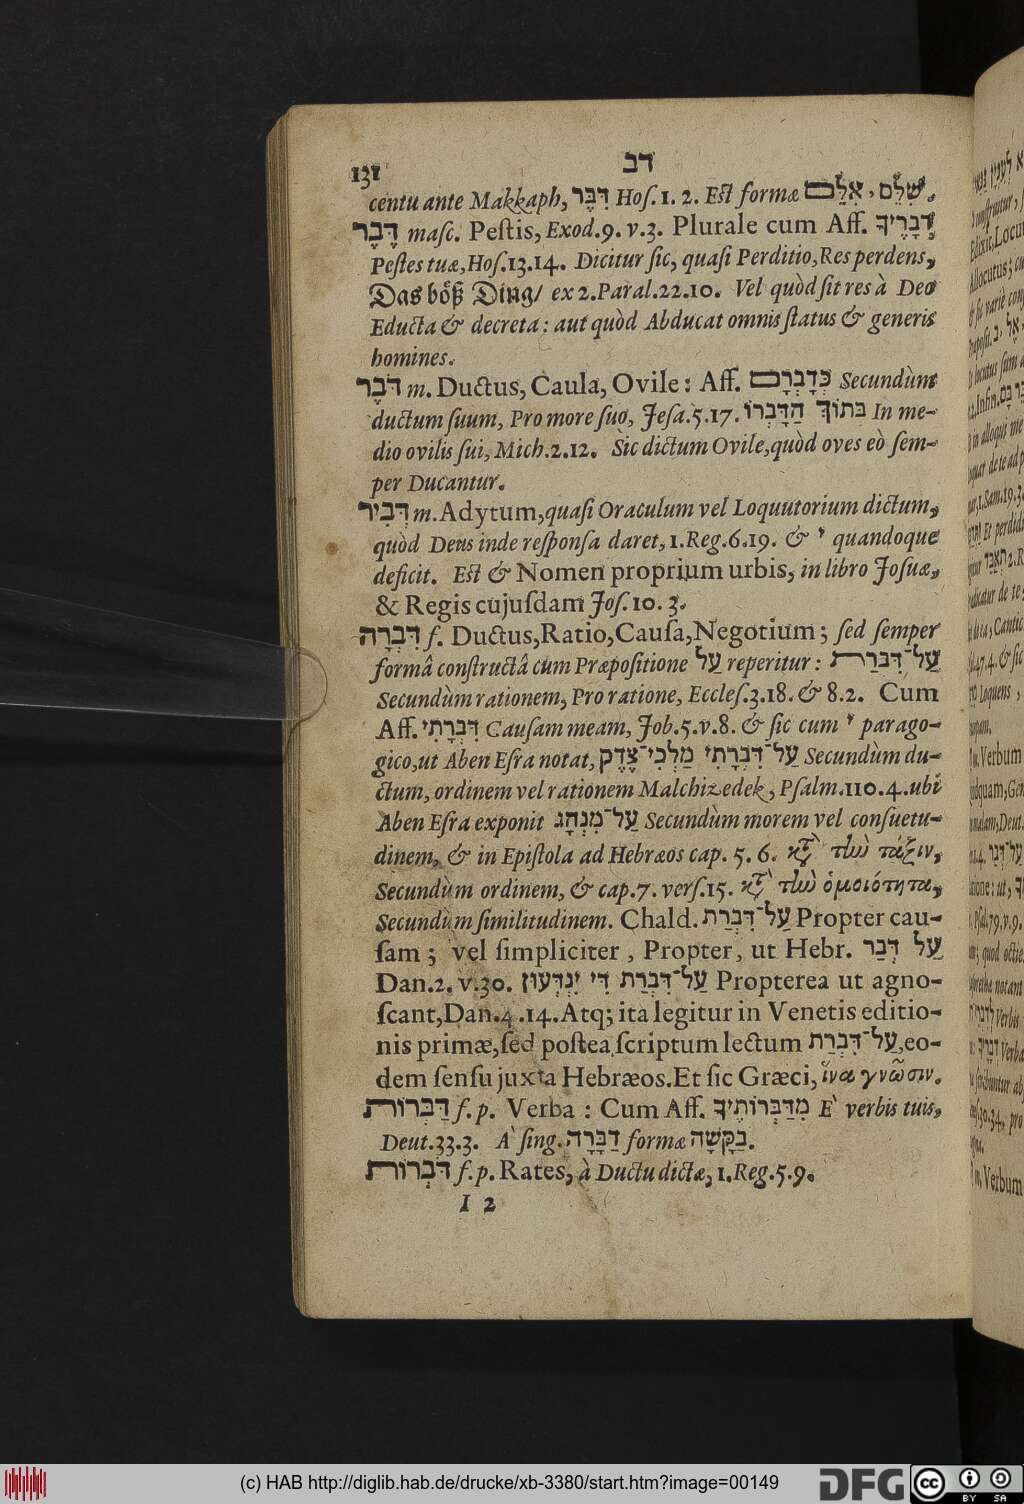 131 דב
centu ante Makkaph, דִּבֶּר Hoſ. 1. 2. Eſt formæ שִׁלֵּם, אִלֵּם.
דֶּבֶר maſc. Peſtis, Exod. 9. v. 3. Plurale cum Aff. דְּבָרֶיךָ
Peſtes tuæ, Hoſ. 13. 14. Dicitur ſic, quaſi Perditio, Res perdens,
Das boͤß Ding/ ex 2. Paral. 22. 10. Vel quòd ſit res à Deo
Educta & decreta: aut quòd Abducat omnis ſtatus & generis
homines.
דֹּבֶר m. Ductus, Caula, Ovile: Aff. כְּדָבְרָם Secundùm
ductum ſuum, Pro more ſuo, Jeſa. 5. 17. בְּתוֹךְ הַדָּבְרוֹ In me-
dio ovilis ſui, Mich. 2. 12. Sic dictum Ovile, quòd oves eò ſem-
per Ducantur.
דְּבִיר m. Adytum, quaſi Oraculum vel Loquutorium dictum,
quòd Deus inde reſponſa daret, 1. Reg. 6. 19. & י quandoque
deficit. Eſt & Nomen proprium urbis, in libro Joſuæ,
& Regis cujuſdam Joſ. 10. 3.
דִּבְרָה f. Ductus, Ratio, Cauſa, Negotium; ſed ſemper
formâ conſtructâ cum Præpoſitione עַל reperitur: עַל־דִּבְרַת
Secundùm rationem, Pro ratione, Eccleſ. 3. 18. & 8. 2. Cum
Aff. דִּבְרָתִי Cauſam meam, Job. 5. v. 8. & ſic cum י parago-
gico, ut Aben Eſra notat, עַל־דִּבְרָתִי מַלְכִּי־צֶדֶק Secundùm du-
ctum, ordinem vel rationem Malchizedek, Pſalm. 110. 4. ubi
Aben Eſra exponit עַל־מִנְהָג Secundùm morem vel conſuetu-
dinem, & in Epiſtola ad Hebræos cap. 5. 6. κατὰ τὴν τάξιν,
Secundùm ordinem, & cap. 7. verſ. 15. κατὰ τὴν ὁμοιότητα,
Secundùm ſimilitudinem. Chald. עַל־דִּבְרַת Propter cau-
ſam; vel ſimpliciter, Propter, ut Hebr. עַל דְּבַר
Dan. 2. v. 30. עַל־דִּבְרַת דִּי יִנְדְּעוּן Propterea ut agno-
ſcant, Dan. 4. 14. Atq; ita legitur in Venetis editio-
nis primæ, ſed poſtea ſcriptum lectum עַל־דִּבְרַת, eo-
dem ſenſu juxta Hebræos. Et ſic Græci, ἵνα γνῶσιν.
דַּבְּרוֹת f. p. Verba: Cum Aff. מִדַּבְּרוֹתֶיךָ E verbis tuis,
Deut. 33. 3. A ſing. דַּבָּרָה formæ בַּקָּשָׁה.
דֹּבְרוֹת f. p. Rates, à Ductu dictæ, 1. Reg. 5. 9.
I 2
(c) HAB http://diglib.hab.de/drucke/xb-3380/start.htm?image=00149
DFG
cc BY SA